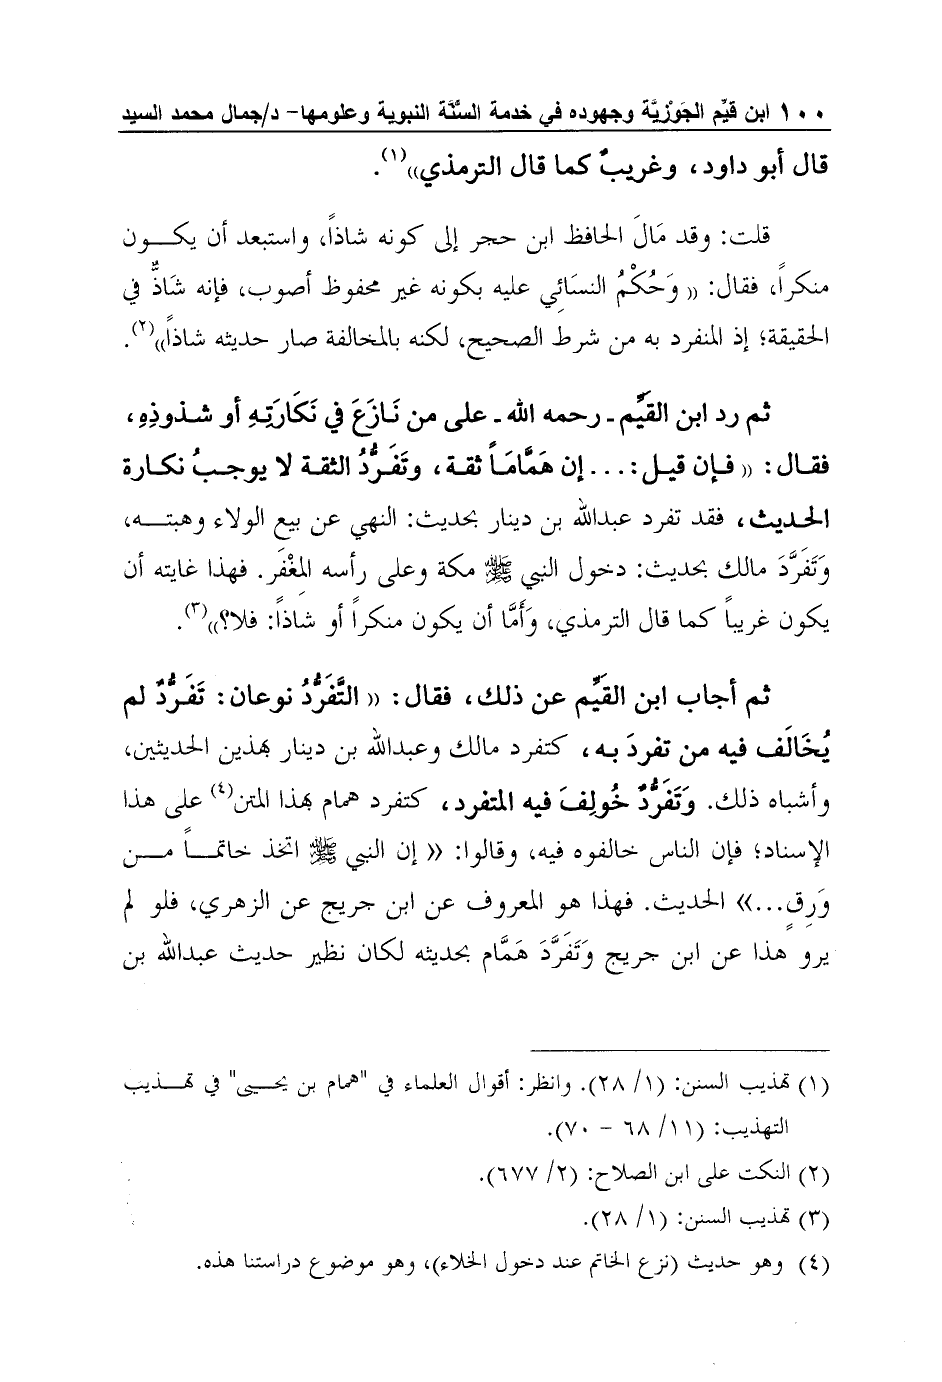 ١٠٠ ابن قيِّم الجَوْزِيَّة وجهوده في خدمة السنَّة النبوية وعلومها- د/جمال محمد السيد
قال أبو داود، وغريبٌ كما قال الترمذي))(١).
قلت: وقد مَالَ الحافظ ابن حجر إلى كونه شاذاً، واستبعد أن يكـــون
منكراً، فقال: (( وَحُكْمُ النسَائِي عليه بكونه غير محفوظ أصوب، فإنه شَاذٌّ في
الحقيقة؛ إذ المنفرد به من شرط الصحيح، لكنه بالمخالفة صار حديثه شاذاً))(٢).
ثم رد ابن القيِّم ـ رحمه الله ـ على من نَازَعَ في نَكَارَتِهِ أو شذوذِهِ،
فقـال: (( فـإن قيـل:... إن هَمَّامَـاً ثقـة، وتَفَرُّدُ الثقـة لا يوجـبُ نكـارة
الحديث، فقد تفرد عبدالله بن دينار بحديث: النهي عن بيع الولاء وهبتـــه،
وَتَفَرَّدَ مالك بحديث: دخول النبي ﷺ مكة وعلى رأسه المِغْفَر. فهذا غايته أن
يكون غريباً كما قال الترمذي، وَأَمَّا أن يكون منكراً أو شاذاً: فلا؟))(٣).
ثم أجاب ابن القيِّم عن ذلك، فقال: (( التَّفَرُّدُ نوعان: تَفَرُّدٌ لم
يُخَالَف فيه من تفردَ به، كتفرد مالك وعبدالله بن دينار بهذين الحديثين،
وأشباه ذلك. وَتَفَرُّدٌ خُولِفَ فيه المتفرد، كتفرد همام بهذا المتن(٤) على هذا
الإسناد؛ فإن الناس خالفوه فيه، وقالوا: (( إن النبي ﷺ اتخذ خاتمـــاً مـــن
وَرِقٍ...)) الحديث. فهذا هو المعروف عن ابن جريج عن الزهري، فلو لم
يرو هذا عن ابن جريج وَتَفَرَّدَ هَمَّام بحديثه لكان نظير حديث عبدالله بن
(١) تهذيب السنن: (١/ ٢٨). وانظر: أقوال العلماء في "همام بن يحيى" في تهــذيب
التهذيب: (١١/ ٦٨ - ٧٠).
(٢) النكت على ابن الصلاح: (٢/ ٦٧٧).
(٣) تهذيب السنن: (١/ ٢٨).
(٤) وهو حديث (نزع الخاتم عند دخول الخلاء)، وهو موضوع دراستنا هذه.